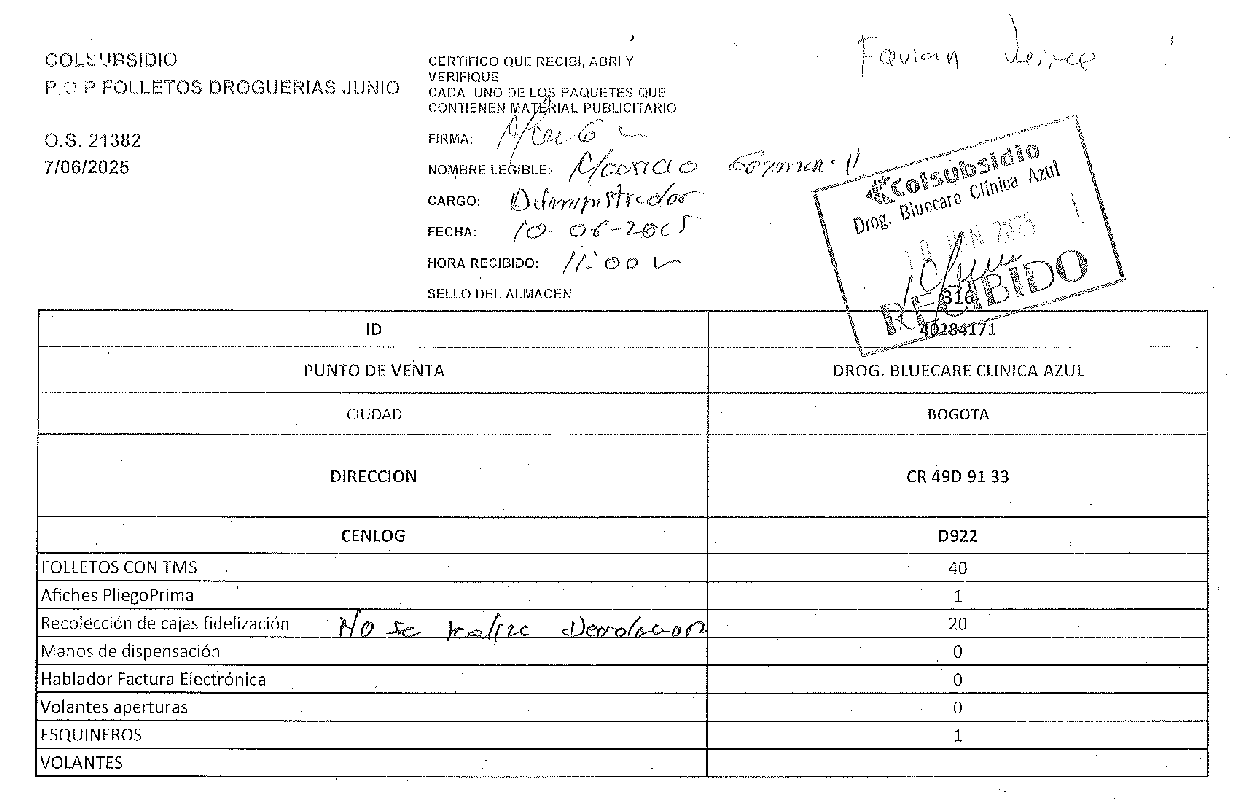 COLSUBSIDIO
P.O.P FOLLETOS DROGUERIAS JUNIO
O.S. 21382
7/06/2025
CERTIFICO QUE RECIBI, ABRI Y
VERIFIQUE
CADA UNO DE LOS PAQUETES QUE
CONTIENEN MATERIAL PUBLICITARIO
FIRMA:
NOMBRE LEGIBLE:
CARGO: Administrador
FECHA: 10-06-2025
HORA RECIBIDO: 11:00
SELLO DEL ALMACEN
Colsubsidio
Drog. Bluecare Clinica Azul
RECIBIDO
ID 40284171
PUNTO DE VENTA DROG. BLUECARE CLINICA AZUL
CIUDAD BOGOTA
DIRECCION CR 49D 91 33
CENLOG D922
FOLLETOS CON TMS 40
Afiches PliegoPrima 1
Recolección de cajas fidelización No se 20
Manos de dispensación 0
Hablador Factura Electrónica 0
Volantes aperturas 0
ESQUINEROS 1
VOLANTES